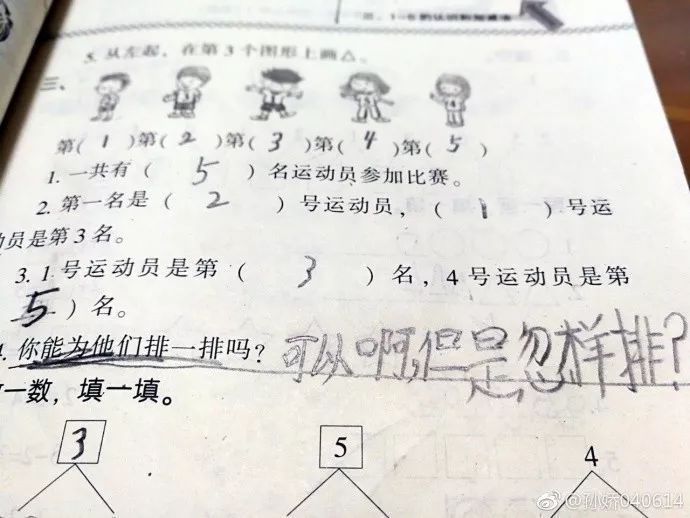 5. 从左起，在第3个图形上画△。
三、
第( 1 )第( 2 )第( 3 )第( 4 )第( 5 )
1. 一共有( 5 )名运动员参加比赛。
2. 第一名是( 2 )号运动员，( 1 )号运
动员是第3名。
3. 1号运动员是第( 3 )名，4号运动员是第
( 5 )名。
4. 你能为他们排一排吗？可以啊,但是忽样排?
数一数，填一填。
3 5 4
@孙娇040614